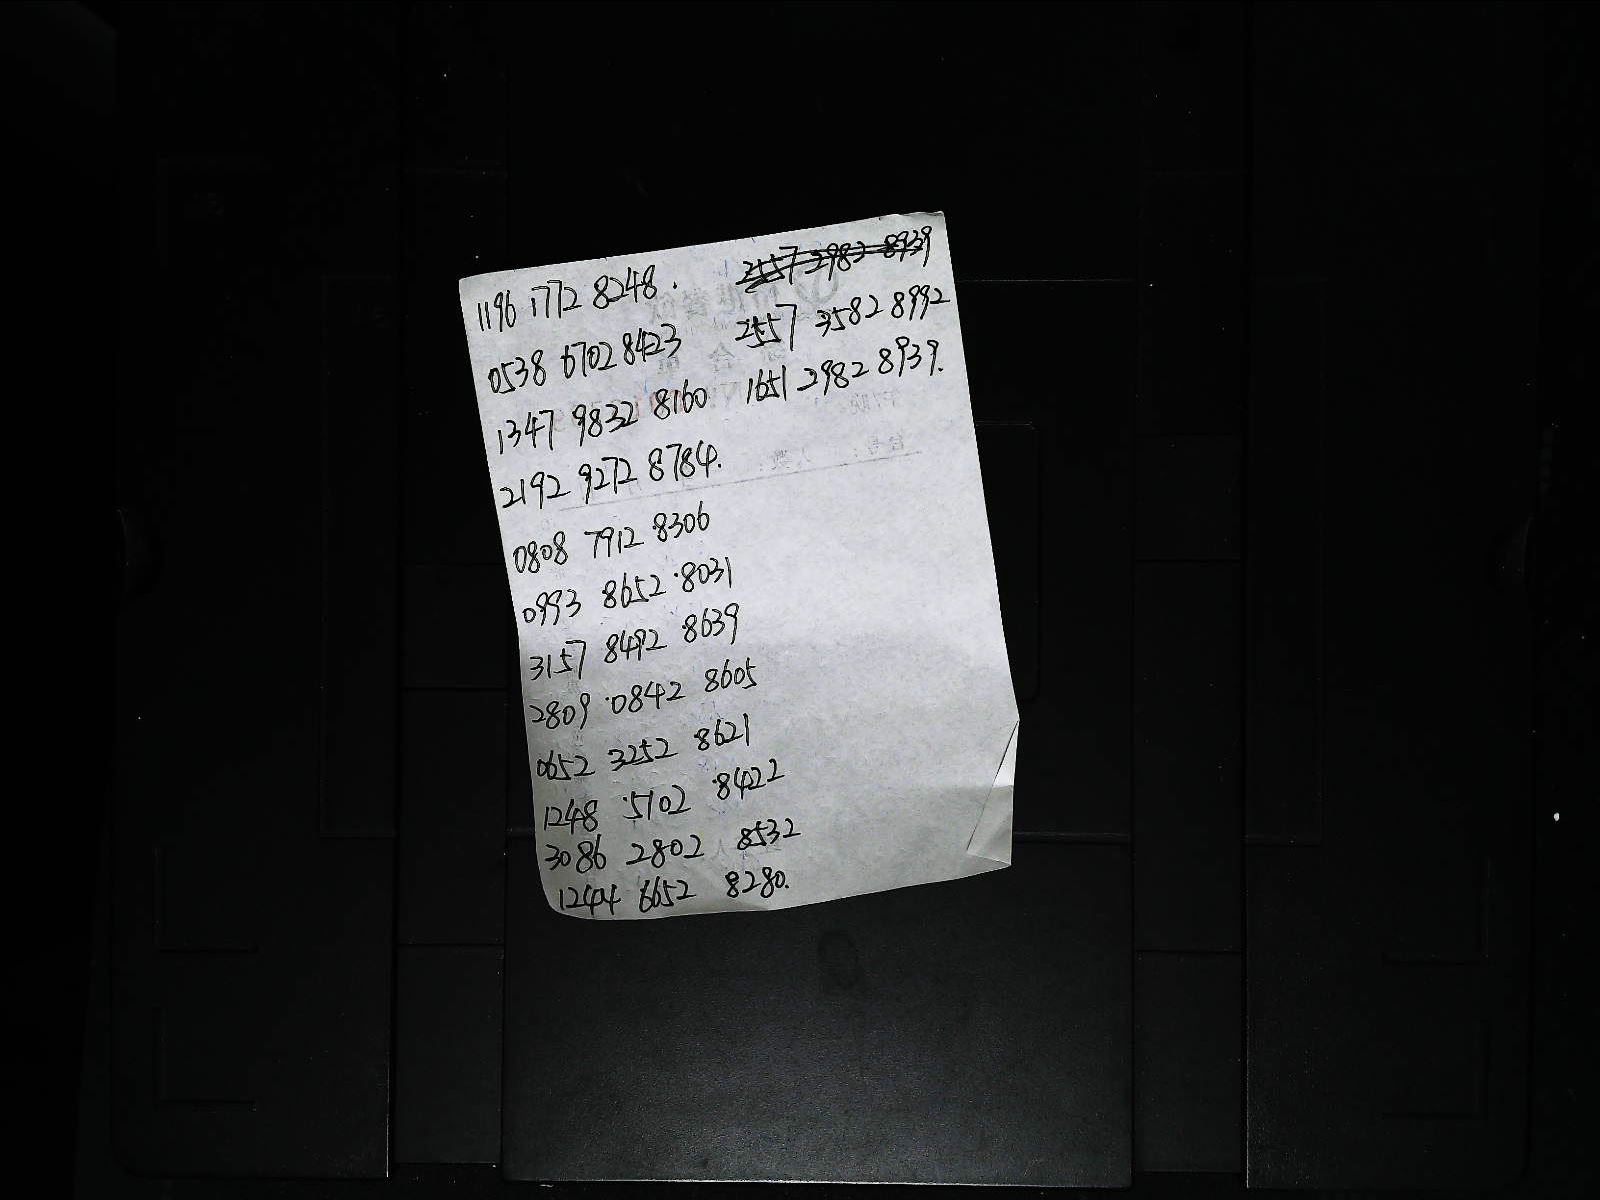 1196 1772 8248.
0538 6702 8423
1347 9832 8160
2192 9272 8784.
0808 7912 8306
0993 8652 8031
3157 8492 8639
2809 0842 8605
0652 3252 8621
1248 5102 8422
3086 2802 8532
1244 6652 8280.
2557 2982 8939
2557 3582 8992
1651 2982 8939.